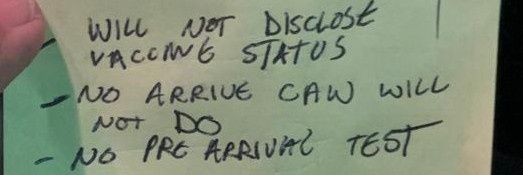 - WILL NOT DISCLOSE
VACCINE STATUS
- NO ARRIVE CAW WILL
NOT DO
- NO PRE ARRIVAL TEST